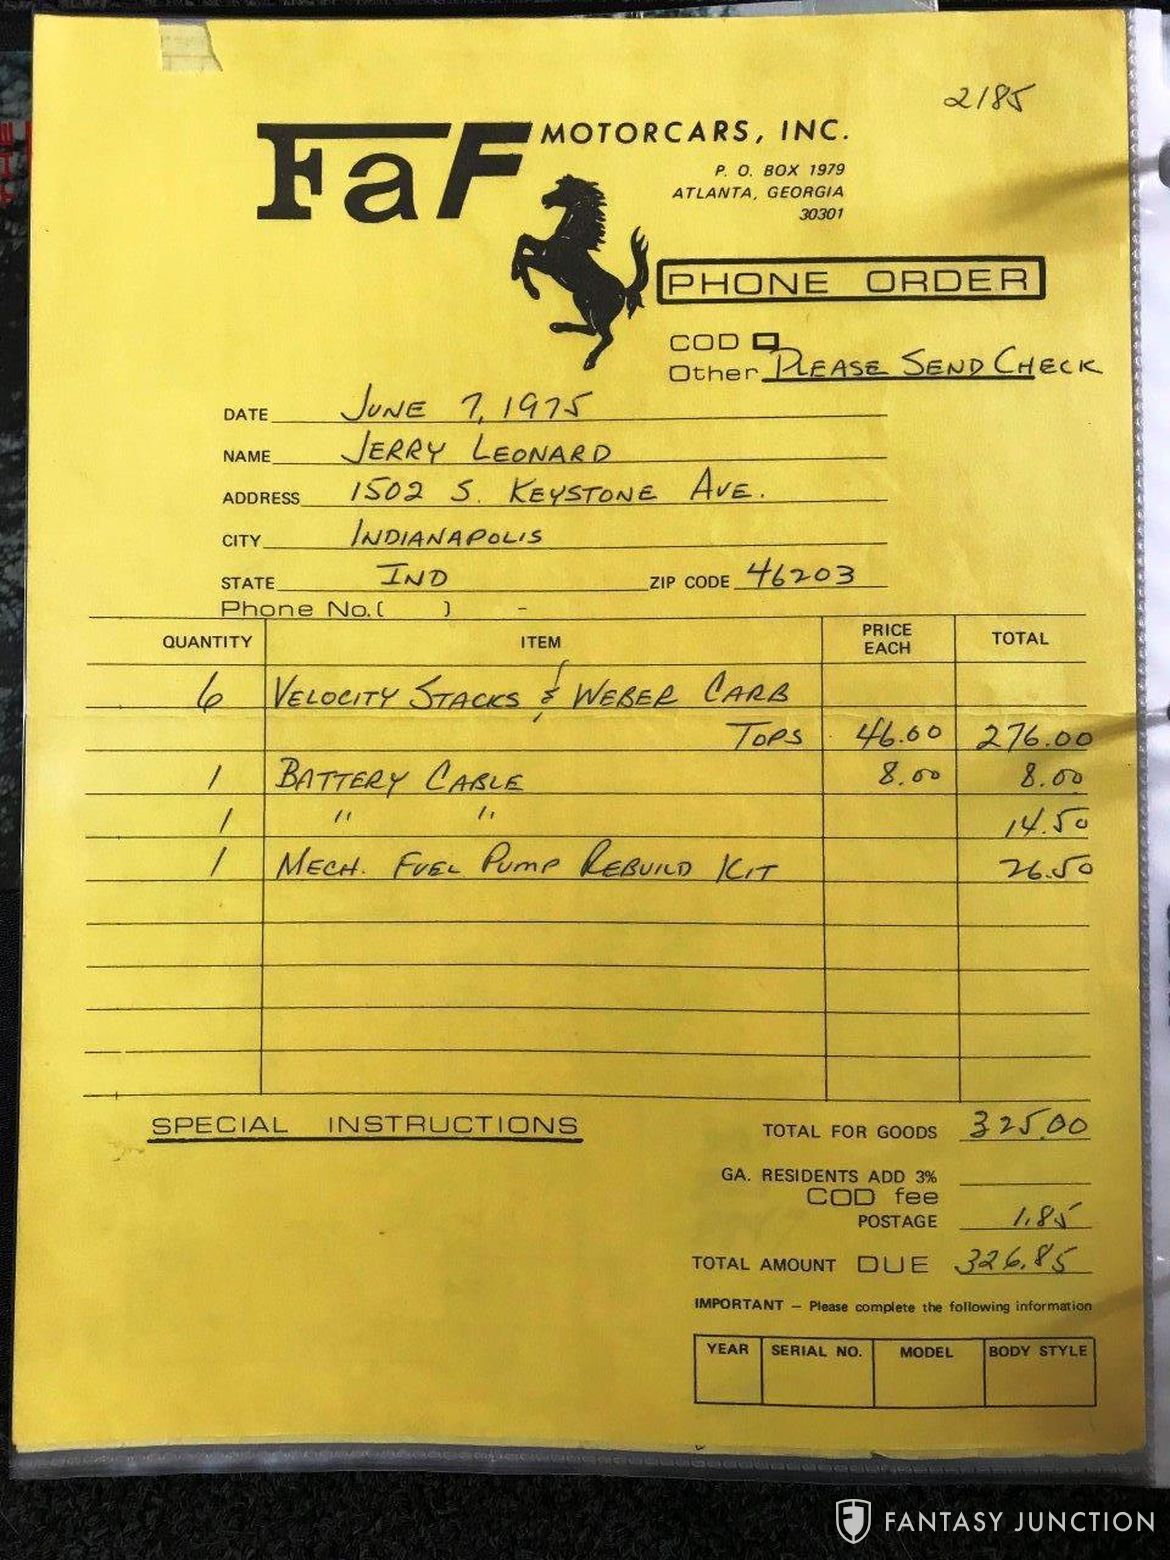 2185
FaF MOTORCARS, INC.
P. O. BOX 1979
ATLANTA, GEORGIA
30301
PHONE ORDER
COD
Other PLEASE SEND CHECK
DATE JUNE 7, 1975
NAME JERRY LEONARD
ADDRESS 1502 S. KEYSTONE AVE.
CITY INDIANAPOLIS
STATE IND ZIP CODE 46203
Phone No. ( ) -
QUANTITY ITEM PRICE EACH TOTAL
6 VELOCITY STACKS & WEBER CARB
TOPS 46.00 276.00
1 BATTERY CABLE 8.00 8.00
1 " " 14.50
1 MECH. FUEL PUMP REBUILD KIT 26.50
SPECIAL INSTRUCTIONS
TOTAL FOR GOODS 325.00
GA. RESIDENTS ADD 3%
COD fee
POSTAGE 1.85
TOTAL AMOUNT DUE 326.85
IMPORTANT — Please complete the following information
YEAR SERIAL NO. MODEL BODY STYLE
FANTASY JUNCTION